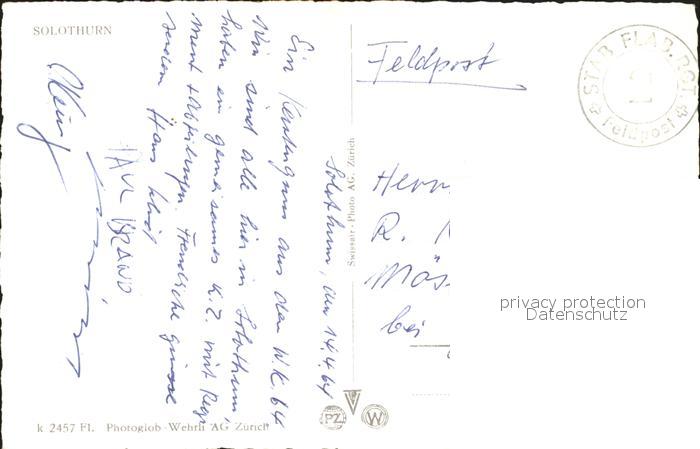 SOLOTHURN
Solothurn, den 14.4.64
Ein Kartengruss aus dem W.K. 64
Wir sind alle hier in Solothurn,
haben ein gemeinsames K.Z. mit Regi
ment + Abteilungen. Herzliche Grüsse
sendet Hans
PAUL BRAND
Feldpost
STAB FLAB. RGT.
Feldpost
Herrn
R.
Mös
bei
privacy protection
Datenschutz
Swissair-Photo AG. Zürich
PZ
W
k 2457 Fl. Photoglob-Wehrli AG Zürich